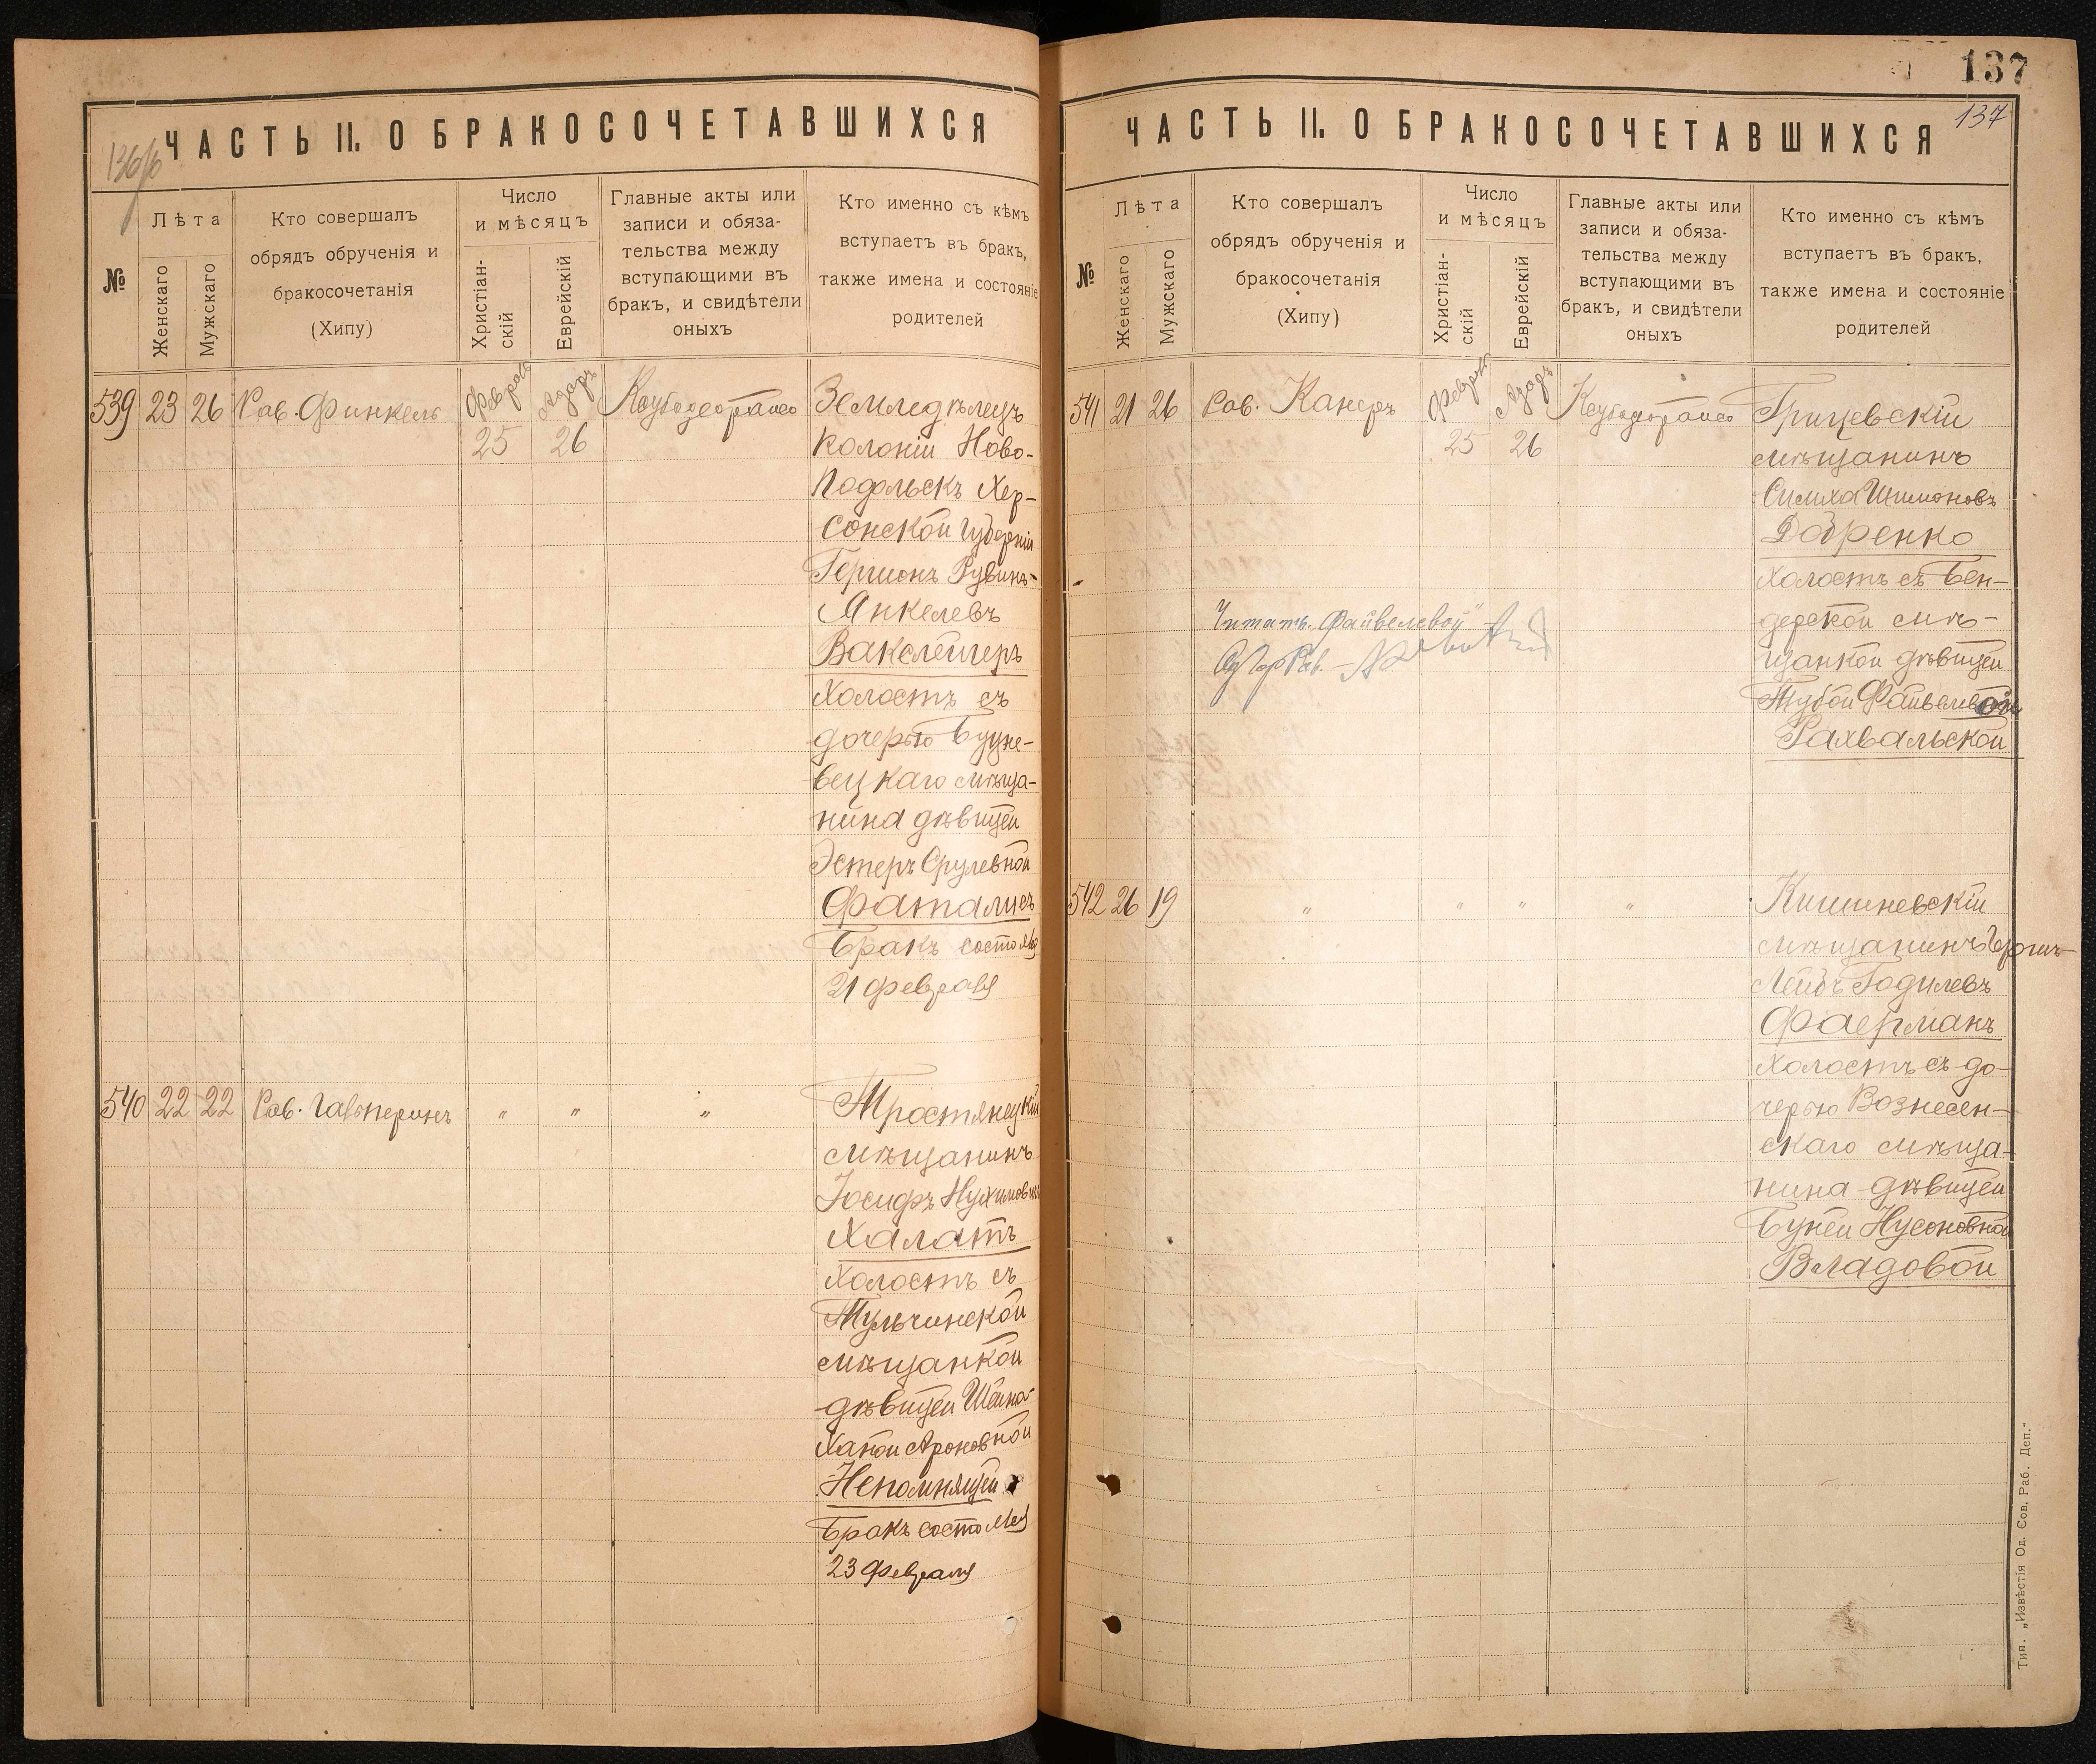 136/б
ЧАСТЬ II. О БРАКОСОЧЕТАВШИХСЯ
№
Лѣта
Женскаго
Мужскаго
Кто совершалъ
обрядъ обрученія и
бракосочетанія
(Хипу)
Число
и мѣсяцъ
Христіан-
скій
Еврейскій
Главные акты или
записи и обяза-
тельства между
вступающими въ
бракъ, и свидѣтели
оныхъ
Кто именно съ кѣмъ
вступаетъ въ бракъ,
также имена и состояніе
родителей
539 23 26 Рав. Финкель Феврал Адаръ
25 26
Земледѣлецъ
колоніи Ново-
Подольскъ Хер-
сонской губерніи
Гершонъ Рувинъ-
Янкелевъ
Вакслейгеръ
холостъ съ
дочерью
мѣща-
нина дѣвицей
Эстеръ Срулевной
Фаталисъ
Бракъ состоялся
21 февраля
540 22 22 Рав. Гальперинъ " " "
Тростянецкій
мѣщанинъ
Іосифъ Нухимовъ
Халатъ
холостъ съ
Тульчинской
мѣщанкой
дѣвицей Шейна-
Ханой Ароновной
Непомнящей
Бракъ состоялся
23 февраля
137
137
ЧАСТЬ II. О БРАКОСОЧЕТАВШИХСЯ
№
Лѣта
Женскаго
Мужскаго
Кто совершалъ
обрядъ обрученія и
бракосочетанія
(Хипу)
Число
и мѣсяцъ
Христіан-
скій
Еврейскій
Главные акты или
записи и обяза-
тельства между
вступающими въ
бракъ, и свидѣтели
оныхъ
Кто именно съ кѣмъ
вступаетъ въ бракъ,
также имена и состояніе
родителей
541 21 26 Рав. Канеръ Феврал Адаръ
25 26
Грицевскій
мѣщанинъ
Симха Шимоновъ
Добренко
холостъ съ Бен-
дерской мѣ-
щанкой дѣвицей
Тубой Файвелевой
Рахвальской
Читать "Файвелевой"
Од Гор Рав.
542 26 19 " " " "
Кишиневскій
мѣщанинъ Гершъ-
Лейбъ Годилевъ
Фаерманъ
холостъ съ до-
черью Вознесен-
скаго мѣща-
нина дѣвицей
Буней Нусоновной
Владовой
Тип. „Извѣстія Од. Сов. Раб. Деп."